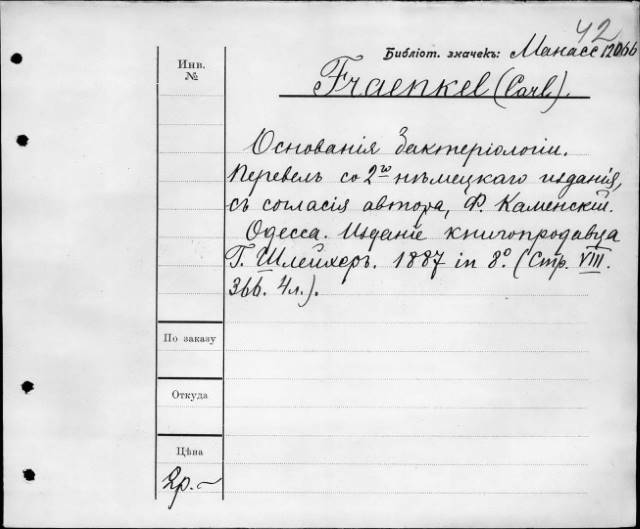 42
Библіот. значекъ: Манасс 12066
Инв.
№
Fraenkel (Carl).
Основанія бактеріологіи.
Перевелъ со 2го нѣмецкаго изданія,
съ согласія автора, Ф. Каменскій.
Одесса. Изданіе книгопродавца
Г. Шлейхеръ. 1887 in 8°. (Стр. VIII.
366. 4л.).
По заказу
Откуда
Цѣна
2р. ~